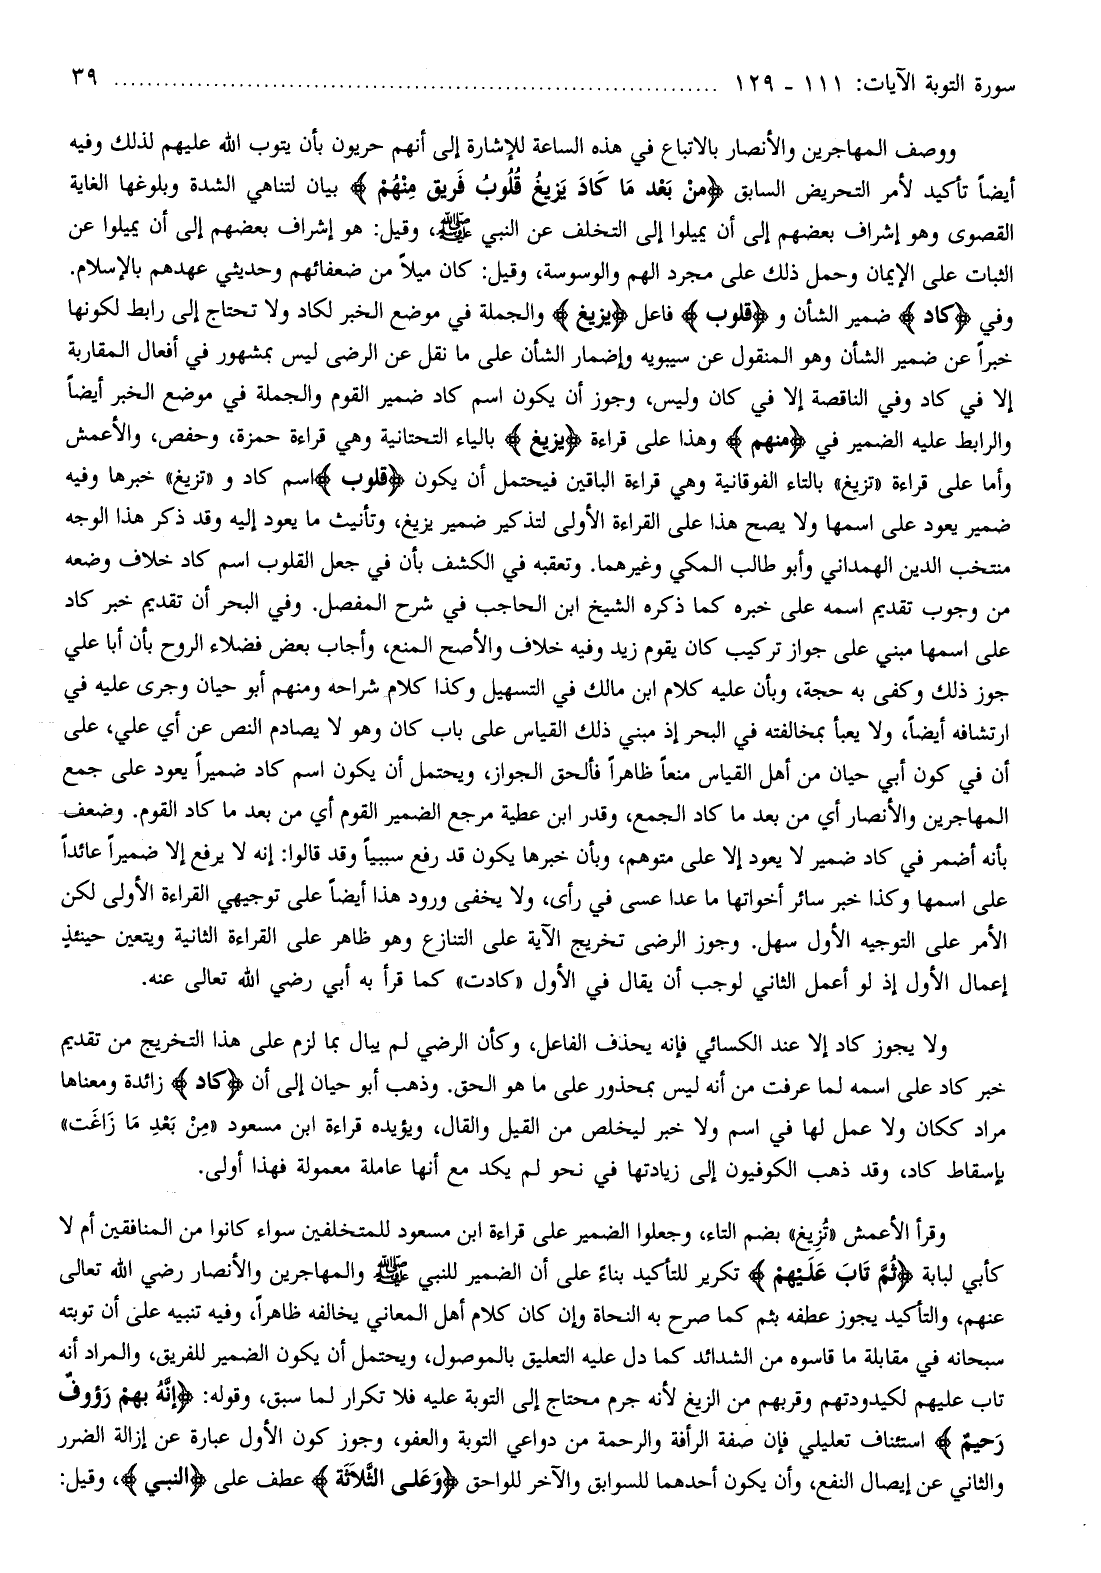 سورة التوبة الآيات: ١١١ - ١٢٩ ........................ ٣٩
ووصف المهاجرين والأنصار بالاتباع في هذه الساعة للإشارة إلى أنهم حريون بأن يتوب الله عليهم لذلك وفيه
أيضاً تأكيد لأمر التحريض السابق ﴿مِنْ بَعْدِ مَا كَادَ يَزِيغُ قُلُوبُ فَرِيقٍ مِنْهُمْ﴾ بيان لتناهي الشدة وبلوغها الغاية
القصوى وهو إشراف بعضهم إلى أن يميلوا إلى التخلف عن النبي ﷺ، وقيل: هو إشراف بعضهم إلى أن يميلوا عن
الثبات على الإيمان وحمل ذلك على مجرد الهم والوسوسة، وقيل: كان ميلاً من ضعفائهم وحديثي عهدهم بالإسلام.
وفي ﴿كاد﴾ ضمير الشأن و ﴿قلوب﴾ فاعل ﴿يزيغ﴾ والجملة في موضع الخبر لكاد ولا تحتاج إلى رابط لكونها
خبراً عن ضمير الشأن وهو المنقول عن سيبويه وإضمار الشأن على ما نقل عن الرضى ليس بمشهور في أفعال المقاربة
إلا في كاد وفي الناقصة إلا في كان وليس، وجوز أن يكون اسم كاد ضمير القوم والجملة في موضع الخبر أيضاً
والرابط عليه الضمير في ﴿منهم﴾ وهذا على قراءة ﴿يزيغ﴾ بالياء التحتانية وهي قراءة حمزة، وحفص، والأعمش
وأما على قراءة «تزيغ» بالتاء الفوقانية وهي قراءة الباقين فيحتمل أن يكون ﴿قلوب﴾اسم كاد و «تزيغ» خبرها وفيه
ضمير يعود على اسمها ولا يصح هذا على القراءة الأولى لتذكير ضمير يزيغ، وتأنيث ما يعود إليه وقد ذكر هذا الوجه
منتخب الدين الهمداني وأبو طالب المكي وغيرهما. وتعقبه في الكشف بأن في جعل القلوب اسم كاد خلاف وضعه
من وجوب تقديم اسمه على خبره كما ذكره الشيخ ابن الحاجب في شرح المفصل. وفي البحر أن تقديم خبر كاد
على اسمها مبني على جواز تركيب كان يقوم زيد وفيه خلاف والأصح المنع، وأجاب بعض فضلاء الروح بأن أبا علي
جوز ذلك وكفى به حجة، وبأن عليه كلام ابن مالك في التسهيل وكذا كلام شراحه ومنهم أبو حيان وجرى عليه في
ارتشافه أيضاً، ولا يعبأ بمخالفته في البحر إذ مبني ذلك القياس على باب كان وهو لا يصادم النص عن أي علي، على
أن في كون أبي حيان من أهل القياس منعاً ظاهراً فألحق الجواز، ويحتمل أن يكون اسم كاد ضميراً يعود على جمع
المهاجرين والأنصار أي من بعد ما كاد الجمع، وقدر ابن عطية مرجع الضمير القوم أي من بعد ما كاد القوم. وضعف
بأنه أضمر في كاد ضمير لا يعود إلا على متوهم، وبأن خبرها يكون قد رفع سببياً وقد قالوا: إنه لا يرفع إلا ضميراً عائداً
على اسمها وكذا خبر سائر أخواتها ما عدا عسى في رأى، ولا يخفى ورود هذا أيضاً على توجيهي القراءة الأولى لكن
الأمر على التوجيه الأول سهل. وجوز الرضى تخريج الآية على التنازع وهو ظاهر على القراءة الثانية ويتعين حينئذٍ
إعمال الأول إذ لو أعمل الثاني لوجب أن يقال في الأول «كادت» كما قرأ به أبي رضي الله تعالى عنه.
ولا يجوز كاد إلا عند الكسائي فإنه يحذف الفاعل، وكأن الرضي لم يبال بما لزم على هذا التخريج من تقديم
خبر كاد على اسمه لما عرفت من أنه ليس بمحذور على ما هو الحق. وذهب أبو حيان إلى أن ﴿كاد﴾ زائدة ومعناها
مراد ككان ولا عمل لها في اسم ولا خبر ليخلص من القيل والقال، ويؤيده قراءة ابن مسعود «مِنْ بَعْدِ مَا زَاغَت»
بإسقاط كاد، وقد ذهب الكوفيون إلى زيادتها في نحو لم يكد مع أنها عاملة معمولة فهذا أولى.
وقرأ الأعمش «تُزِيغ» بضم التاء، وجعلوا الضمير على قراءة ابن مسعود للمتخلفين سواء كانوا من المنافقين أم لا
كأبي لبابة ﴿ثُمَّ تَابَ عَلَيْهِمْ﴾ تكرير للتأكيد بناءً على أن الضمير للنبي ﷺ والمهاجرين والأنصار رضي الله تعالى
عنهم، والتأكيد يجوز عطفه بثم كما صرح به النحاة وإن كان كلام أهل المعاني يخالفه ظاهراً، وفيه تنبيه على أن توبته
سبحانه في مقابلة ما قاسوه من الشدائد كما دل عليه التعليق بالموصول، ويحتمل أن يكون الضمير للفريق، والمراد أنه
تاب عليهم لكيدودتهم وقربهم من الزيغ لأنه جرم محتاج إلى التوبة عليه فلا تكرار لما سبق، وقوله: ﴿إِنَّهُ بِهِمْ رَؤُوفٌ
رَحِيمٌ﴾ استئناف تعليلي فإن صفة الرأفة والرحمة من دواعي التوبة والعفو، وجوز كون الأول عبارة عن إزالة الضرر
والثاني عن إيصال النفع، وأن يكون أحدهما للسوابق والآخر للواحق ﴿وَعَلَى الثَّلاَثَةِ﴾ عطف على ﴿النبي﴾، وقيل: